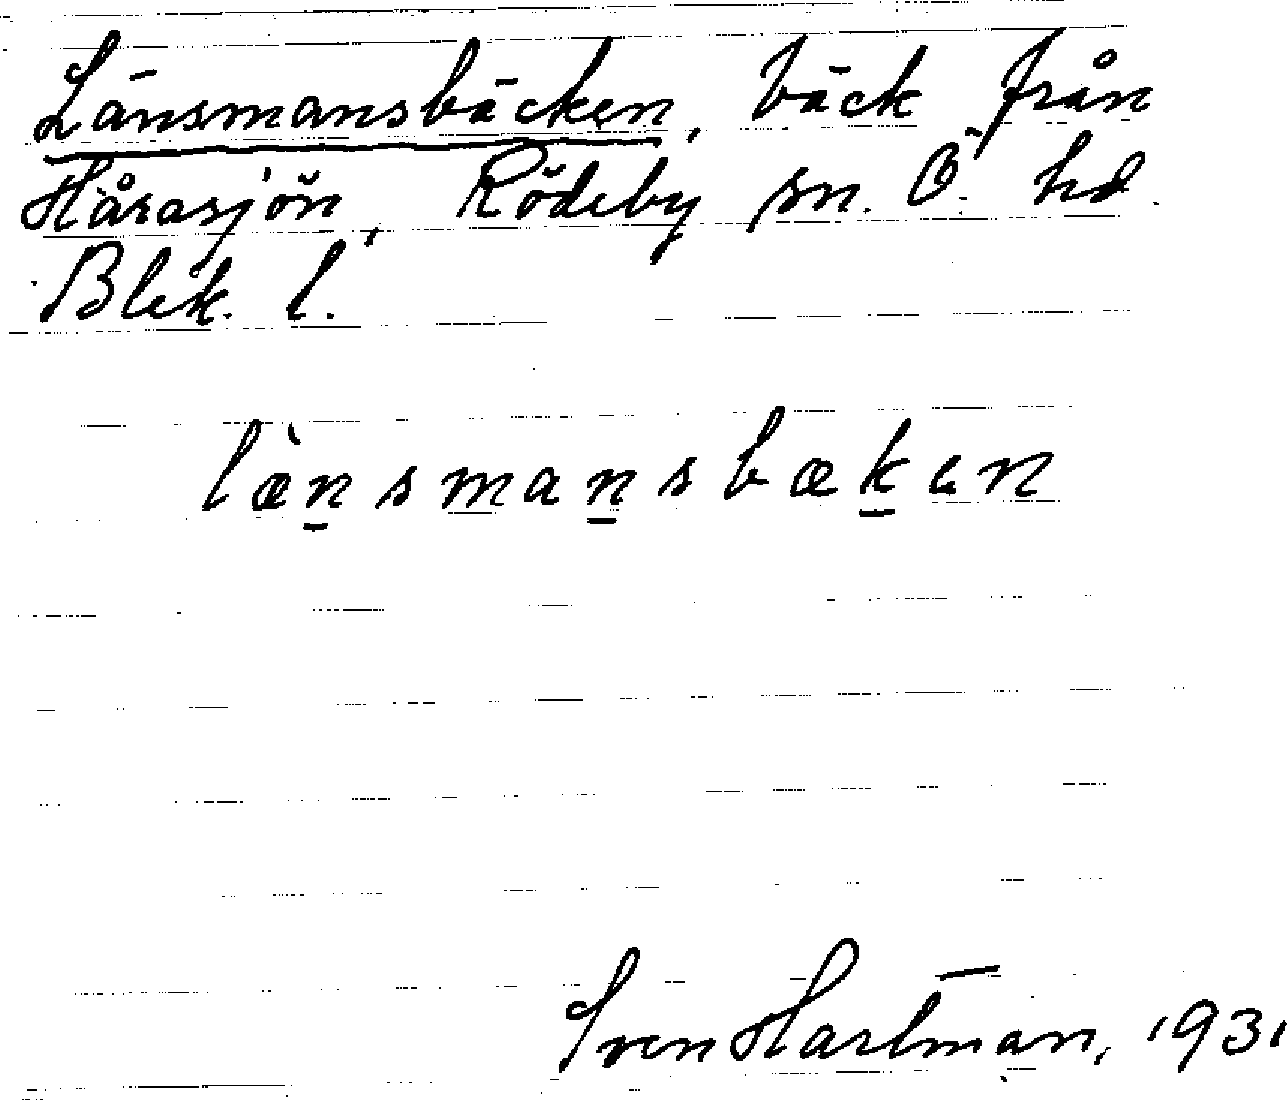 Länsmansbäcken, bäck från
Hårasjön, Rödeby sn. Ö. hd.
Blek. l.
læ̀n̲sman̲sbæk̲en
Sven Hartman, 1931